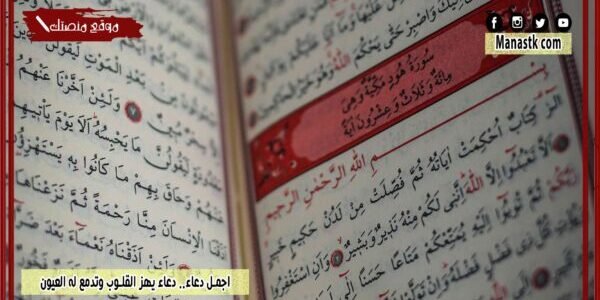 موقع منصتك
Manastk com
اِلَيْكَ وَاصْبِرْ حَتّٰى يَحْكُمَ اللّٰهُ وَهُوَ خَيْرُ الْحَاكِمِينَ
سُورَةُ هُودٍ مَكِّيَّةٌ وَهِىَ
مِائَةٌ وَثَلَاثٌ وَعِشْرُونَ اٰيَةً
اللّٰهِ الرَّحْمٰنِ الرَّحِيمِ
الٓرٰ كِتَابٌ اُحْكِمَتْ اٰيَاتُهُ ثُمَّ فُصِّلَتْ مِنْ لَدُنْ حَكِيمٍ خَبِيرٍ
اَلَّا تَعْبُدُوا اِلَّا اللّٰهَ اِنَّنِى لَكُمْ مِنْهُ نَذِيرٌ وَبَشِيرٌ وَاَنِ اسْتَغْفِرُوا
رَبَّكُمْ ثُمَّ تُوبُوا اِلَيْهِ يُمَتِّعْكُمْ مَتَاعًا حَسَنًا اِلٰى
كُلَّ ذِى فَضْلٍ فَضْلَهُ وَاِنْ
بَعْدِ الْمَوْتِ لَيَقُولَنَّ
وَلَئِنْ اَخَّرْنَا عَنْهُمُ
مَعْدُودَةٍ لَيَقُولُنَّ مَا يَحْبِسُهُ اَلَا يَوْمَ يَأْتِيهِمْ
عَنْهُمْ وَحَاقَ بِهِمْ مَا كَانُوا بِهِ يَسْتَهْزِؤُنَ
الْاِنْسَانَ مِنَّا رَحْمَةً ثُمَّ نَزَعْنَاهَا
وَلَئِنْ اَذَقْنَاهُ نَعْمَاءَ بَعْدَ
اجمل دعاء.. دعاء يهز القلوب وتدمع له العيون